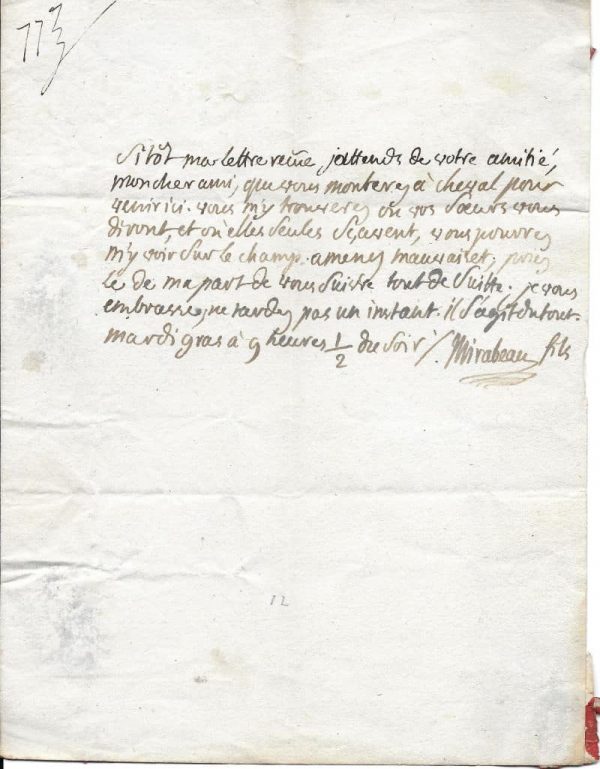 773
Sitôt ma lettre reçüe, j'attends de votre amitié,
mon cher ami, que vous monterez à cheval pour
venir ici. vous m'y trouverez où vos sœurs vous
diront, et où elles seules sçavent, vous pouvez
m'y voir sur le champ. amenez mauvallet; priez
le de ma part de vous suivre tout de suitte. je vous
embrasse, ne tardez pas un instant. il s'agit du tout.
mardi gras à 9 heures 1/2 du soir /. Mirabeau fils
12